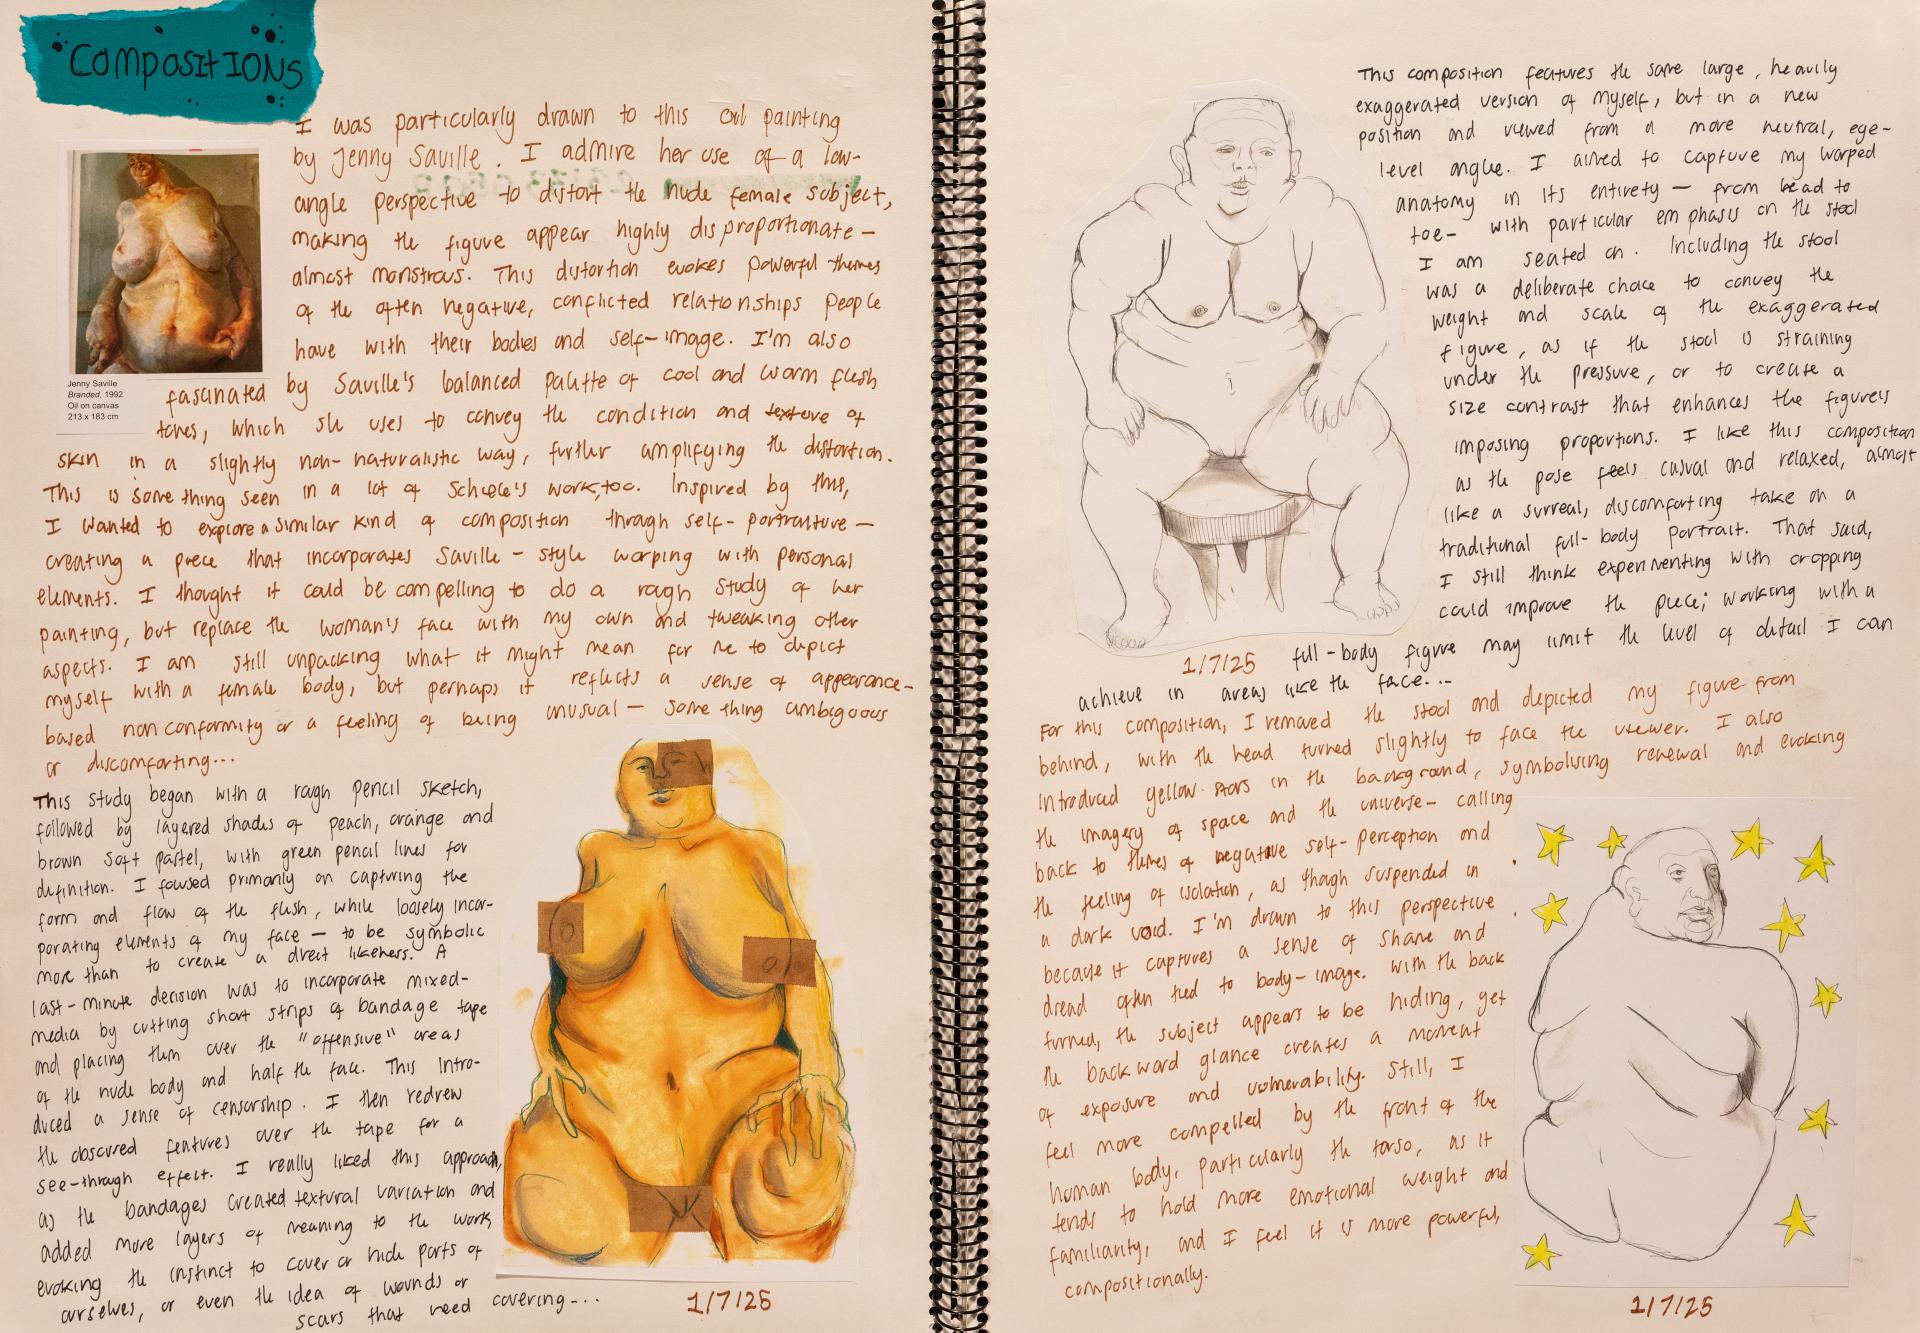 COMPOSITIONS
I was particularly drawn to this oil painting
by Jenny Saville. I admire her use of a low-
angle perspective to distort the nude female subject,
making the figure appear highly disproportionate —
almost monstrous. This distortion evokes powerful themes
of the often negative, conflicted relationships people
have with their bodies and self-image. I'm also
fascinated by Saville's balanced palette of cool and warm flesh
tones, which she uses to convey the condition and texture of
skin in a slightly non-naturalistic way, further amplifying the distortion.
This is something seen in a lot of Schiele's work, too. Inspired by this,
I wanted to explore a similar kind of composition through self-portraiture —
creating a piece that incorporates Saville-style warping with personal
elements. I thought it could be compelling to do a rough study of her
painting, but replace the woman's face with my own and tweaking other
aspects. I am still unpacking what it might mean for me to depict
myself with a female body, but perhaps it reflects a sense of appearance-
based nonconformity or a feeling of being unusual — something ambiguous
or discomforting...
Jenny Saville
Branded, 1992
Oil on canvas
213 x 183 cm
This study began with a rough pencil sketch,
followed by layered shades of peach, orange and
brown soft pastel, with green pencil lines for
definition. I focused primarily on capturing the
form and flow of the flesh, while loosely incor-
porating elements of my face — to be symbolic
more than to create a direct likeness. A
last-minute decision was to incorporate mixed-
media by cutting short strips of bandage tape
and placing them over the "offensive" areas
of the nude body and half the face. This intro-
duced a sense of censorship. I then redrew
the obscured features over the tape for a
see-through effect. I really liked this approach,
as the bandages created textural variation and
added more layers of meaning to the work,
evoking the instinct to cover or hide parts of
ourselves, or even the idea of wounds or
scars that need covering...
1/7/25
This composition features the same large, heavily
exaggerated version of myself, but in a new
position and viewed from a more neutral, eye-
level angle. I aimed to capture my warped
anatomy in its entirety — from head to
toe — with particular emphasis on the stool
I am seated on. Including the stool
was a deliberate choice to convey the
weight and scale of the exaggerated
figure, as if the stool is straining
under the pressure, or to create a
size contrast that enhances the figure's
imposing proportions. I like this composition
as the pose feels casual and relaxed, almost
like a surreal, discomforting take on a
traditional full-body portrait. That said,
I still think experimenting with cropping
could improve the piece; working with a
full-body figure may limit the level of detail I can
achieve in areas like the face...
1/7/25
For this composition, I removed the stool and depicted my figure from
behind, with the head turned slightly to face the viewer. I also
introduced yellow stars in the background, symbolising renewal and evoking
the imagery of space and the universe — calling
back to themes of negative self-perception and
the feeling of isolation, as though suspended in
a dark void. I'm drawn to this perspective
because it captures a sense of shame and
dread often tied to body-image. With the back
turned, the subject appears to be hiding, yet
the backward glance creates a moment
of exposure and vulnerability. Still, I
feel more compelled by the front of the
human body, particularly the torso, as it
tends to hold more emotional weight and
familiarity, and I feel it is more powerful,
compositionally.
1/7/25